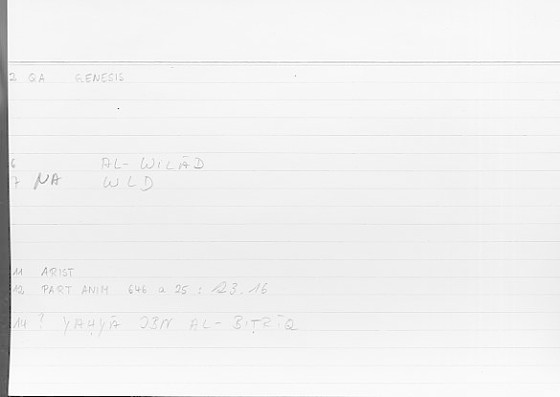 2 QA GENESIS
6 AL-WILĀD
7 NA WLD
11 ARIST
12 PART ANIM 646 a 25 : 23.16
14 ? YAḤYĀ IBN AL-BIṬRĪQ